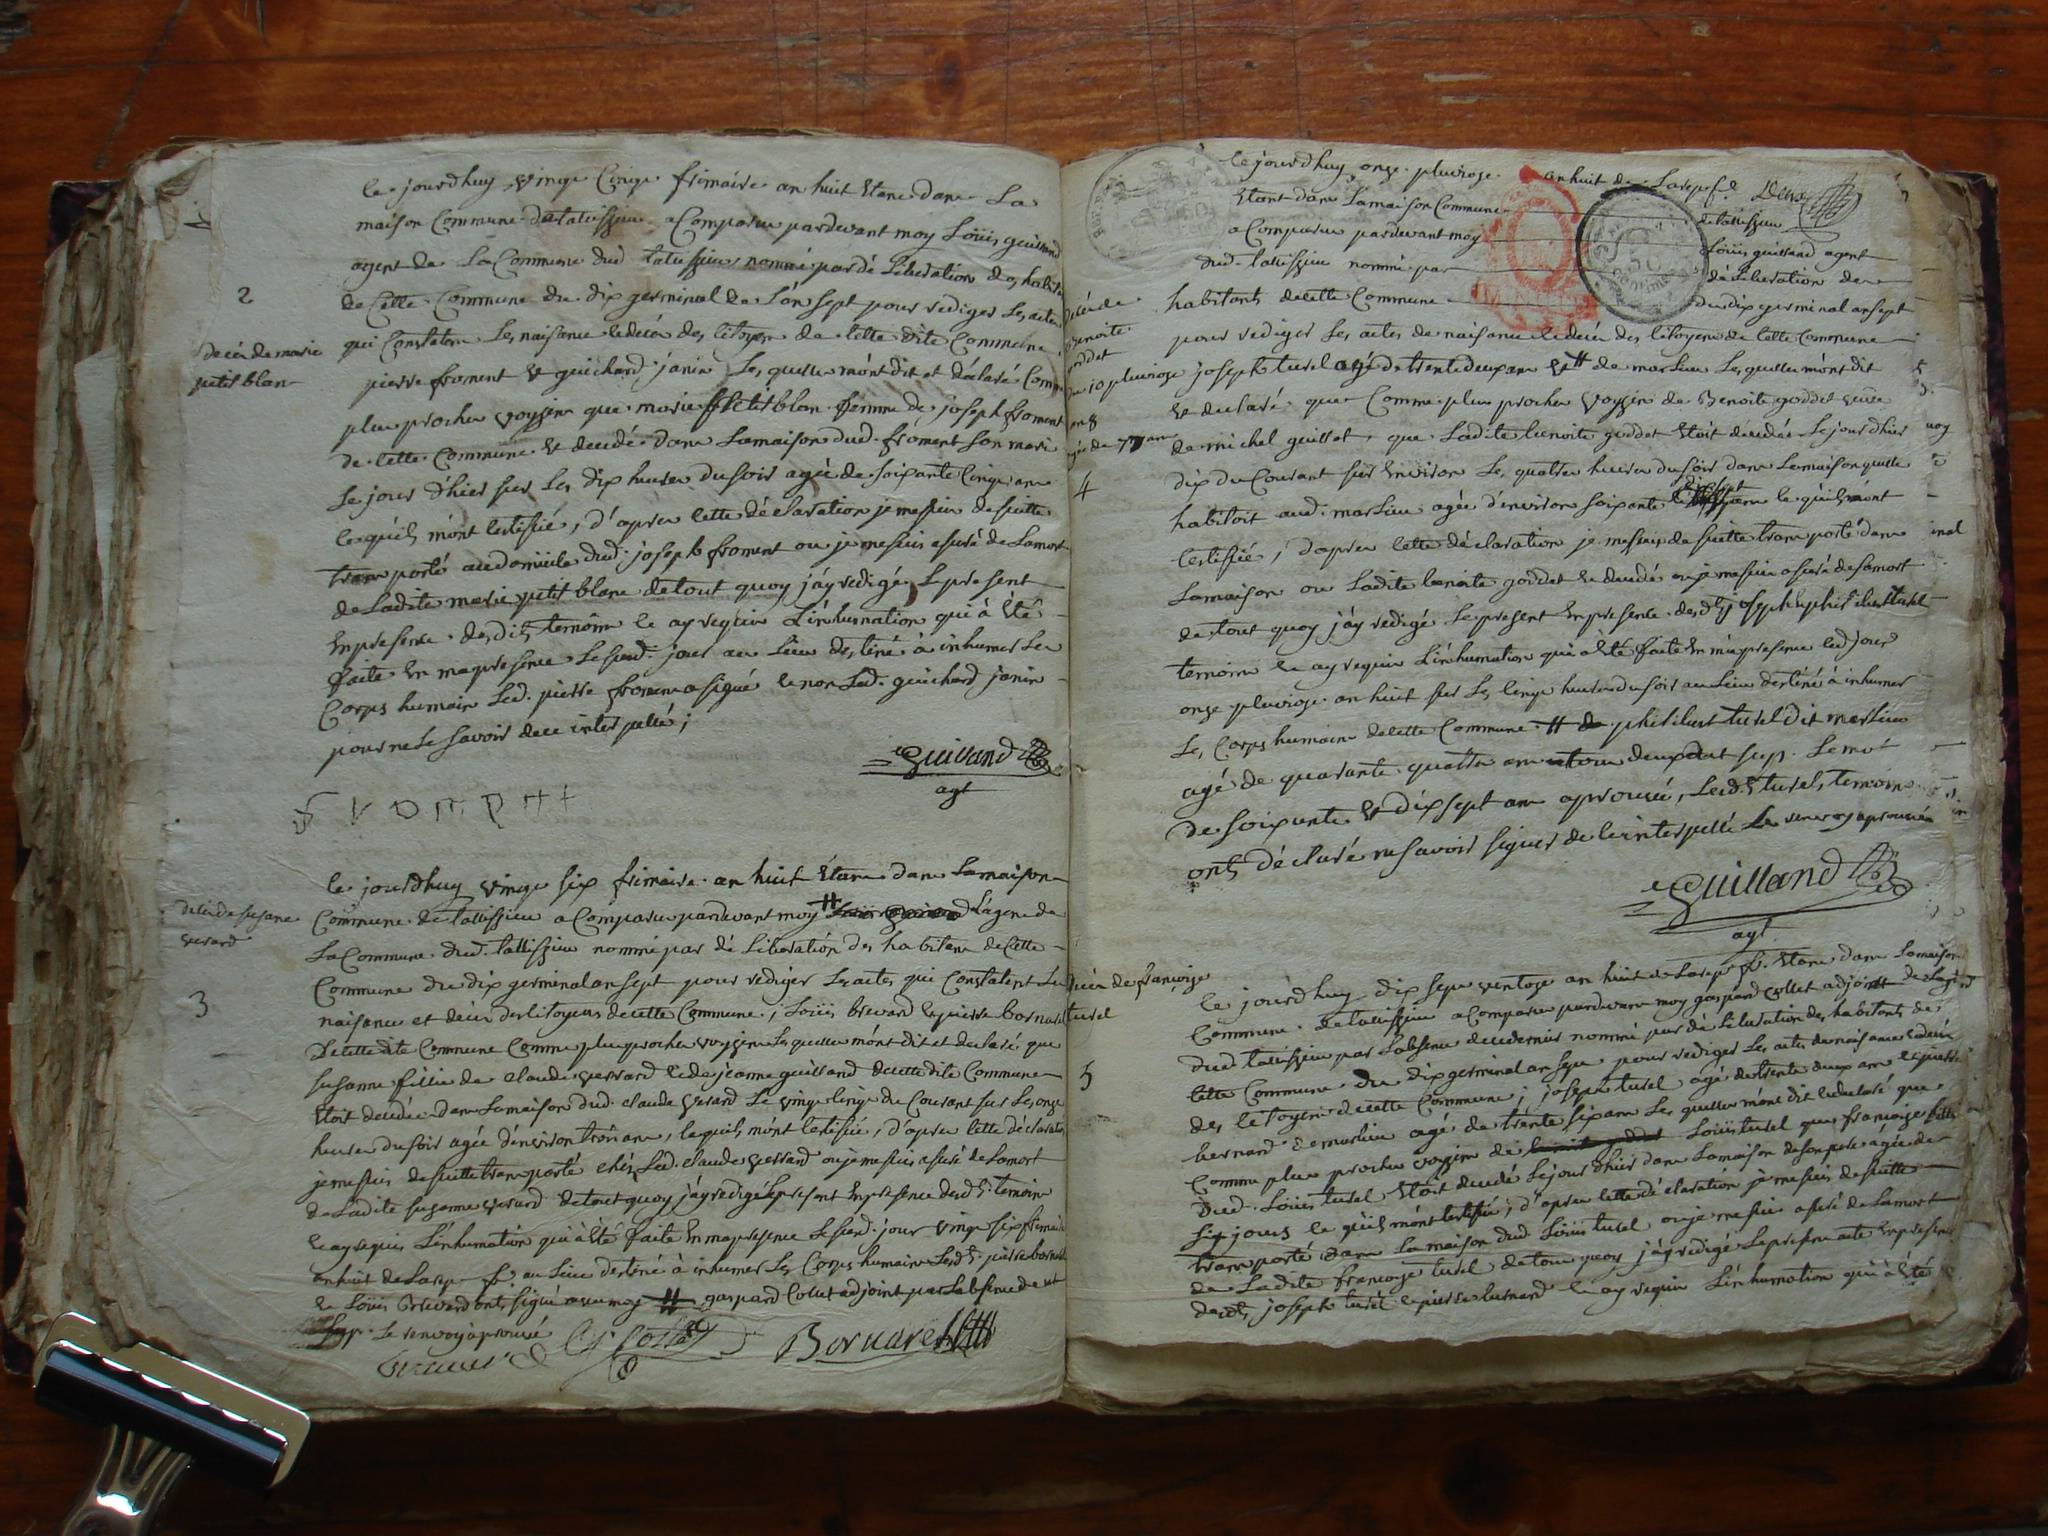 le jourdhuy vingt Cinq frimaire an huit Etant dans La
maison Commune de talissieu a Comparu pardevant moy Loüis guilland
agent de La Commune dud. talissieu nommé par dé Libération des habitans
de Cette Commune du dix germinal de L'an sept pour rediger Les actes
qui Constatent Les naisance et decès des Citoyens de Cette dite Commune
pierre froment & guichard janin Les quelles m'ont dit et déclaré Comme
plus proches voyzin que marie petit blan femme de joseph froment
de Cette Commune & decedé dans La maison dud. froment son mari
Le jour d'hier sur Les dix heures du soir agée de soixante Cinq ans
Ce quils m'ont Certifié, d'apres Cette déclaration je me suis de suitte
transporté au domicile dud. joseph froment ou je me suis assuré de La mort
de Ladite marie petit blanc de tout quoy j'ay redigé Le present
En presence desdits temoins et ay requis L'inhumation qui à Eté
faite En ma presence Le susd. jour au Lieu destiné à inhumer Les
Corps humain Led. pierre froment a signé et non Led. guichard janin
pour ne Le savoir de ce interpellé ;
Guilland
agt
froment
2
decès de marie
petit blan
le jourdhuy vingt six frimaire an huit Etant dans La maison
Commune de talissieu a Comparu pardevant moy # L'agent de
La Commune dud. talissieu nommé par dé Libération des habitans de Cette
Commune du dix germinal an sept pour rediger Les actes qui Constatent Les
naisance et decès des Citoyens de cette Commune, Loüis brevard et pierre bornard
De cette dite Commune Comme plus proches voyzin Les quelles m'ont dit et declaré que
susanne fillie de claude verrard et de jeanne guilland de cette dite Commune
Etoit decedée dans La maison dud. claude verard Le vingt Cinq du Courant sur Les onze
heures du soir agée d'environ trois ans, Ce quils m'ont Certifié, d'apres Cette déclaration
je me suis de suitte transporté chez Led. claude verrard ou je me suis assuré de La mort
de Ladite susanne verard de tout quoy j'ay redigé Le present En presence desd. temoins
et ay requis L'inhumation qui à Eté faite En ma presence Le susd. jour vingt six frimaire
an huit de La rep. f. au Lieu destiné à inhumer Les Corps humains Lesd. pierre bornard
et Loüis Brevard ont signé avec moy # gaspard Collet adjoint par L'absence de
Le renvoy aprouvé
Collet
Bornard
decès de susane
verard
3
le jourdhuy onze pluviose an huit de La rep. f.
Etant dans La maison Commune de talissieu
a Comparu pardevant moy Loüis guilland agent
dud. talissieu nommé par dé Libération des
habitants de cette Commune du dix germinal an sept
pour rediger Les actes de naisance et decès des Citoyens de Cette Commune
joseph turel agé de trente deux ans & # de marlieu Les quelles m'ont dit
& declaré que Comme plus proches voyzin de Benoite goddet veuve
de michel guillot, que Ladite benoite goddet Etoit decedée Le jour d'hier
dix du Courant sur Environ Les quatre heures du soir dans La maison quelle
habitoit aud. marlieu agée d'environ soixante dix sept ans Ce quils m'ont
Certifié, d'apres Cette déclaration je me suis de suitte transporté dans
La maison ou Ladite benoite goddet & decedé ou je me suis assuré de sa mort
de tout quoy j'ay redigé Le present En presence desd. joseph & philibert turel
temoins et ay requis L'inhumation qui à Eté faite En ma presence Led. jour
onze pluviose an huit sur Les Cinq heures du soir au Lieu destiné à inhumer
Les Corps humain de cette Commune # philibert turel dit marlieu
agé de quarante quatre ans Le mot
de soixante & dix sept ans aprouvé, Lesd. turel, temoins
ont déclaré ne savoir signer de Ce interpellé Le renvoy aprouvé
Guilland
agt
decès de
Benoite
goddet
du 10 pluviose
an 8
agée de 77 ans
4
Le jourdhuy dix sept ventose an huit de La rep. f. Etant dans La maison
Commune de talissieu a Comparu pardevant moy gaspard Collet adjoint de L'agent
dud. talissieu par L'absence de ce dernier nommé par dé Libération des habitants de
Cette Commune du dix germinal an sept pour rediger Les actes de naisance et decès
des Citoyens de cette Commune ; joseph turel agé de trente deux ans et pierre
bernard de marlieu agé de trente six ans Les quelles m'ont dit et declaré que
Comme plus proches voyzin de Loüis turel que françoise fillie
dud. Loüis turel Etoit decedé Le jour d'hier dans La maison de son pere agée de
six jours Ce quils m'ont Certifié, d'apres Cette déclaration je me suis de suitte
transporté dans La maison dud. Loüis turel ou je me suis assuré de La mort
de Ladite françoise turel de tout quoy j'ay redigé Le present acte En presence
desd. joseph turel et pierre bernard et ay requis L'inhumation qui à Eté
decès de françoise
turel
5